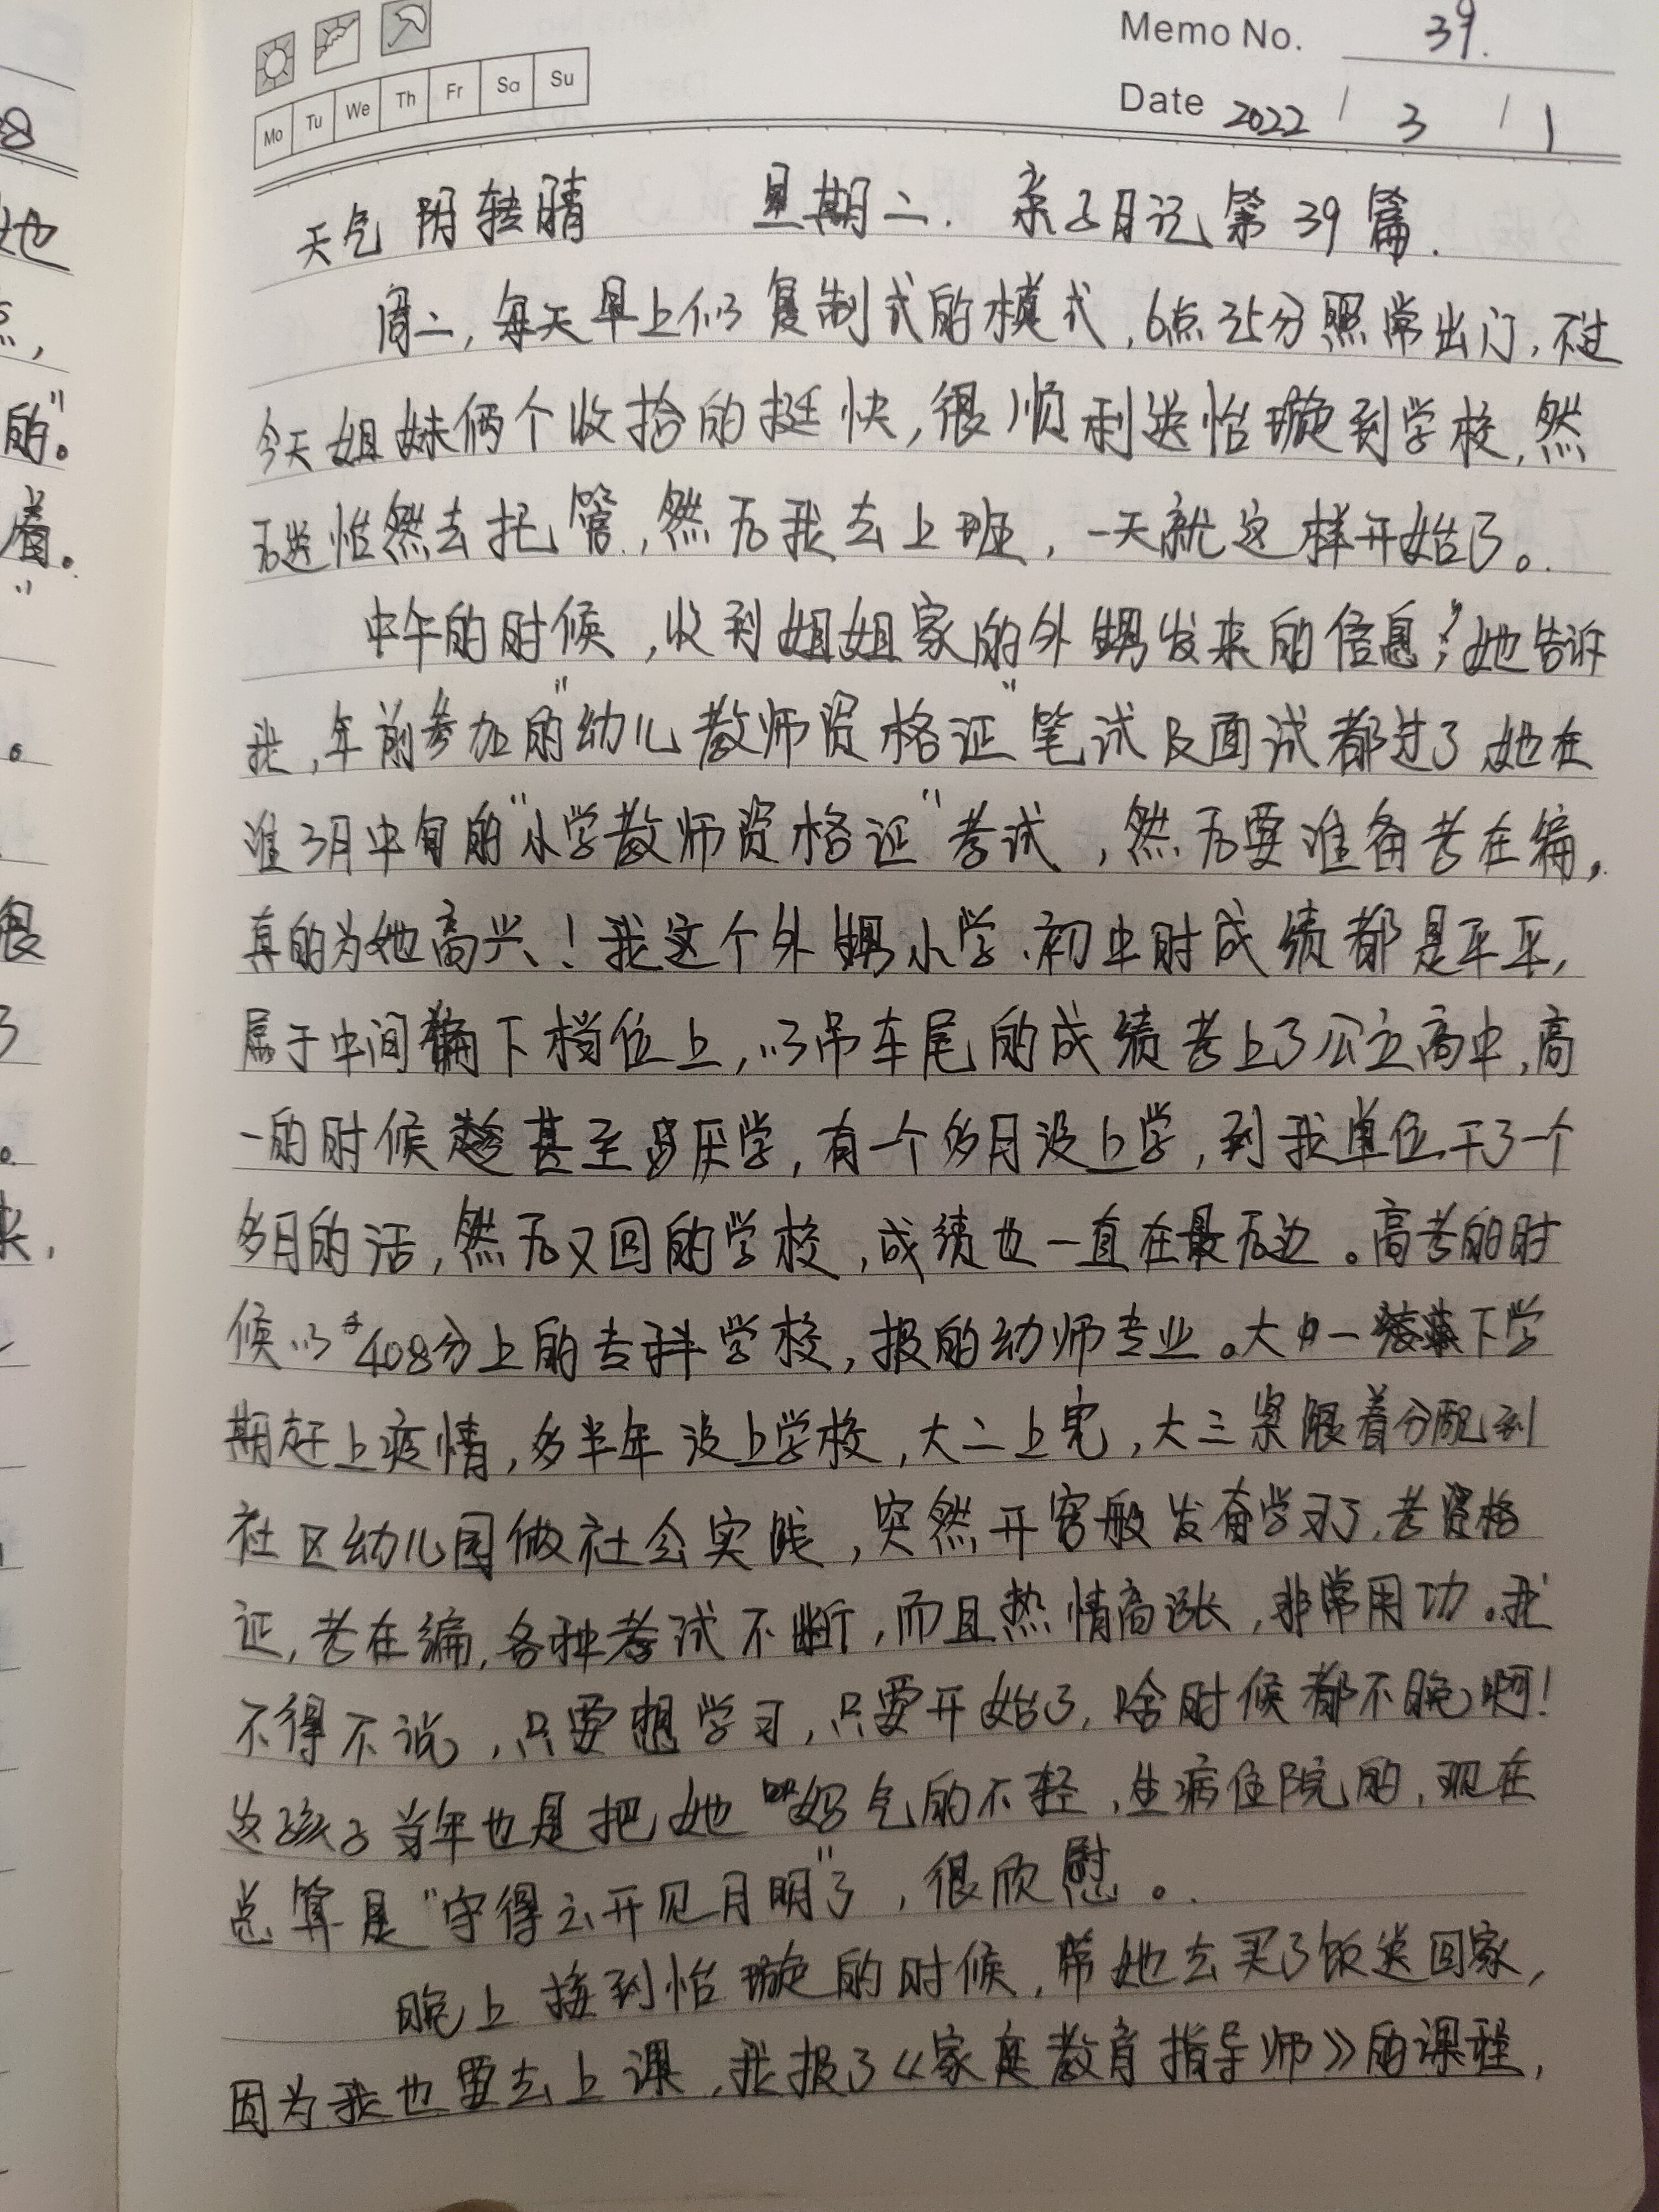 Memo No. 39.
Mo Tu We Th Fr Sa Su
Date 2022 / 3 / 1
天气 阴转晴 星期二. 亲子日记第39篇.
周二,每天早上似复制式的模式,6点35分照常出门,不过
今天姐妹俩个收拾的挺快,很顺利送怡璇到学校,然
后送怡然去托管,然后我去上班,一天就这样开始了。
中午的时候,收到姐姐家的外甥发来的信息,她告诉
我,年前参加的"幼儿教师资格证"笔试及面试都过了,她在
准3月中旬的"小学教师资格证"考试,然后要准备考在编,
真的为她高兴!我这个外甥小学、初中时成绩都是平平,
属于中间偏下档位上,以吊车尾的成绩考上了公立高中,高
一的时候甚至厌学,有一个多月没上学,到我单位干了一个
多月的活,然后又回的学校,成绩也一直在最后边。高考的时
候以408分上的专科学校,报的幼师专业。大一下学
期赶上疫情,多半年没上学校,大二上完,大三紧跟着分配到
社区幼儿园做社会实践,突然开窍般发奋学习了,考资格
证,考在编,各种考试不断,而且热情高涨,非常用功。我
不得不说,只要想学习,只要开始了,啥时候都不晚啊!
这孩子当年也是把她妈气的不轻,生病住院的,现在
总算是"守得云开见月明"了,很欣慰。
晚上接到怡璇的时候,带她去买了饭送回家,
因为我也要去上课,我报了《家庭教育指导师》的课程,